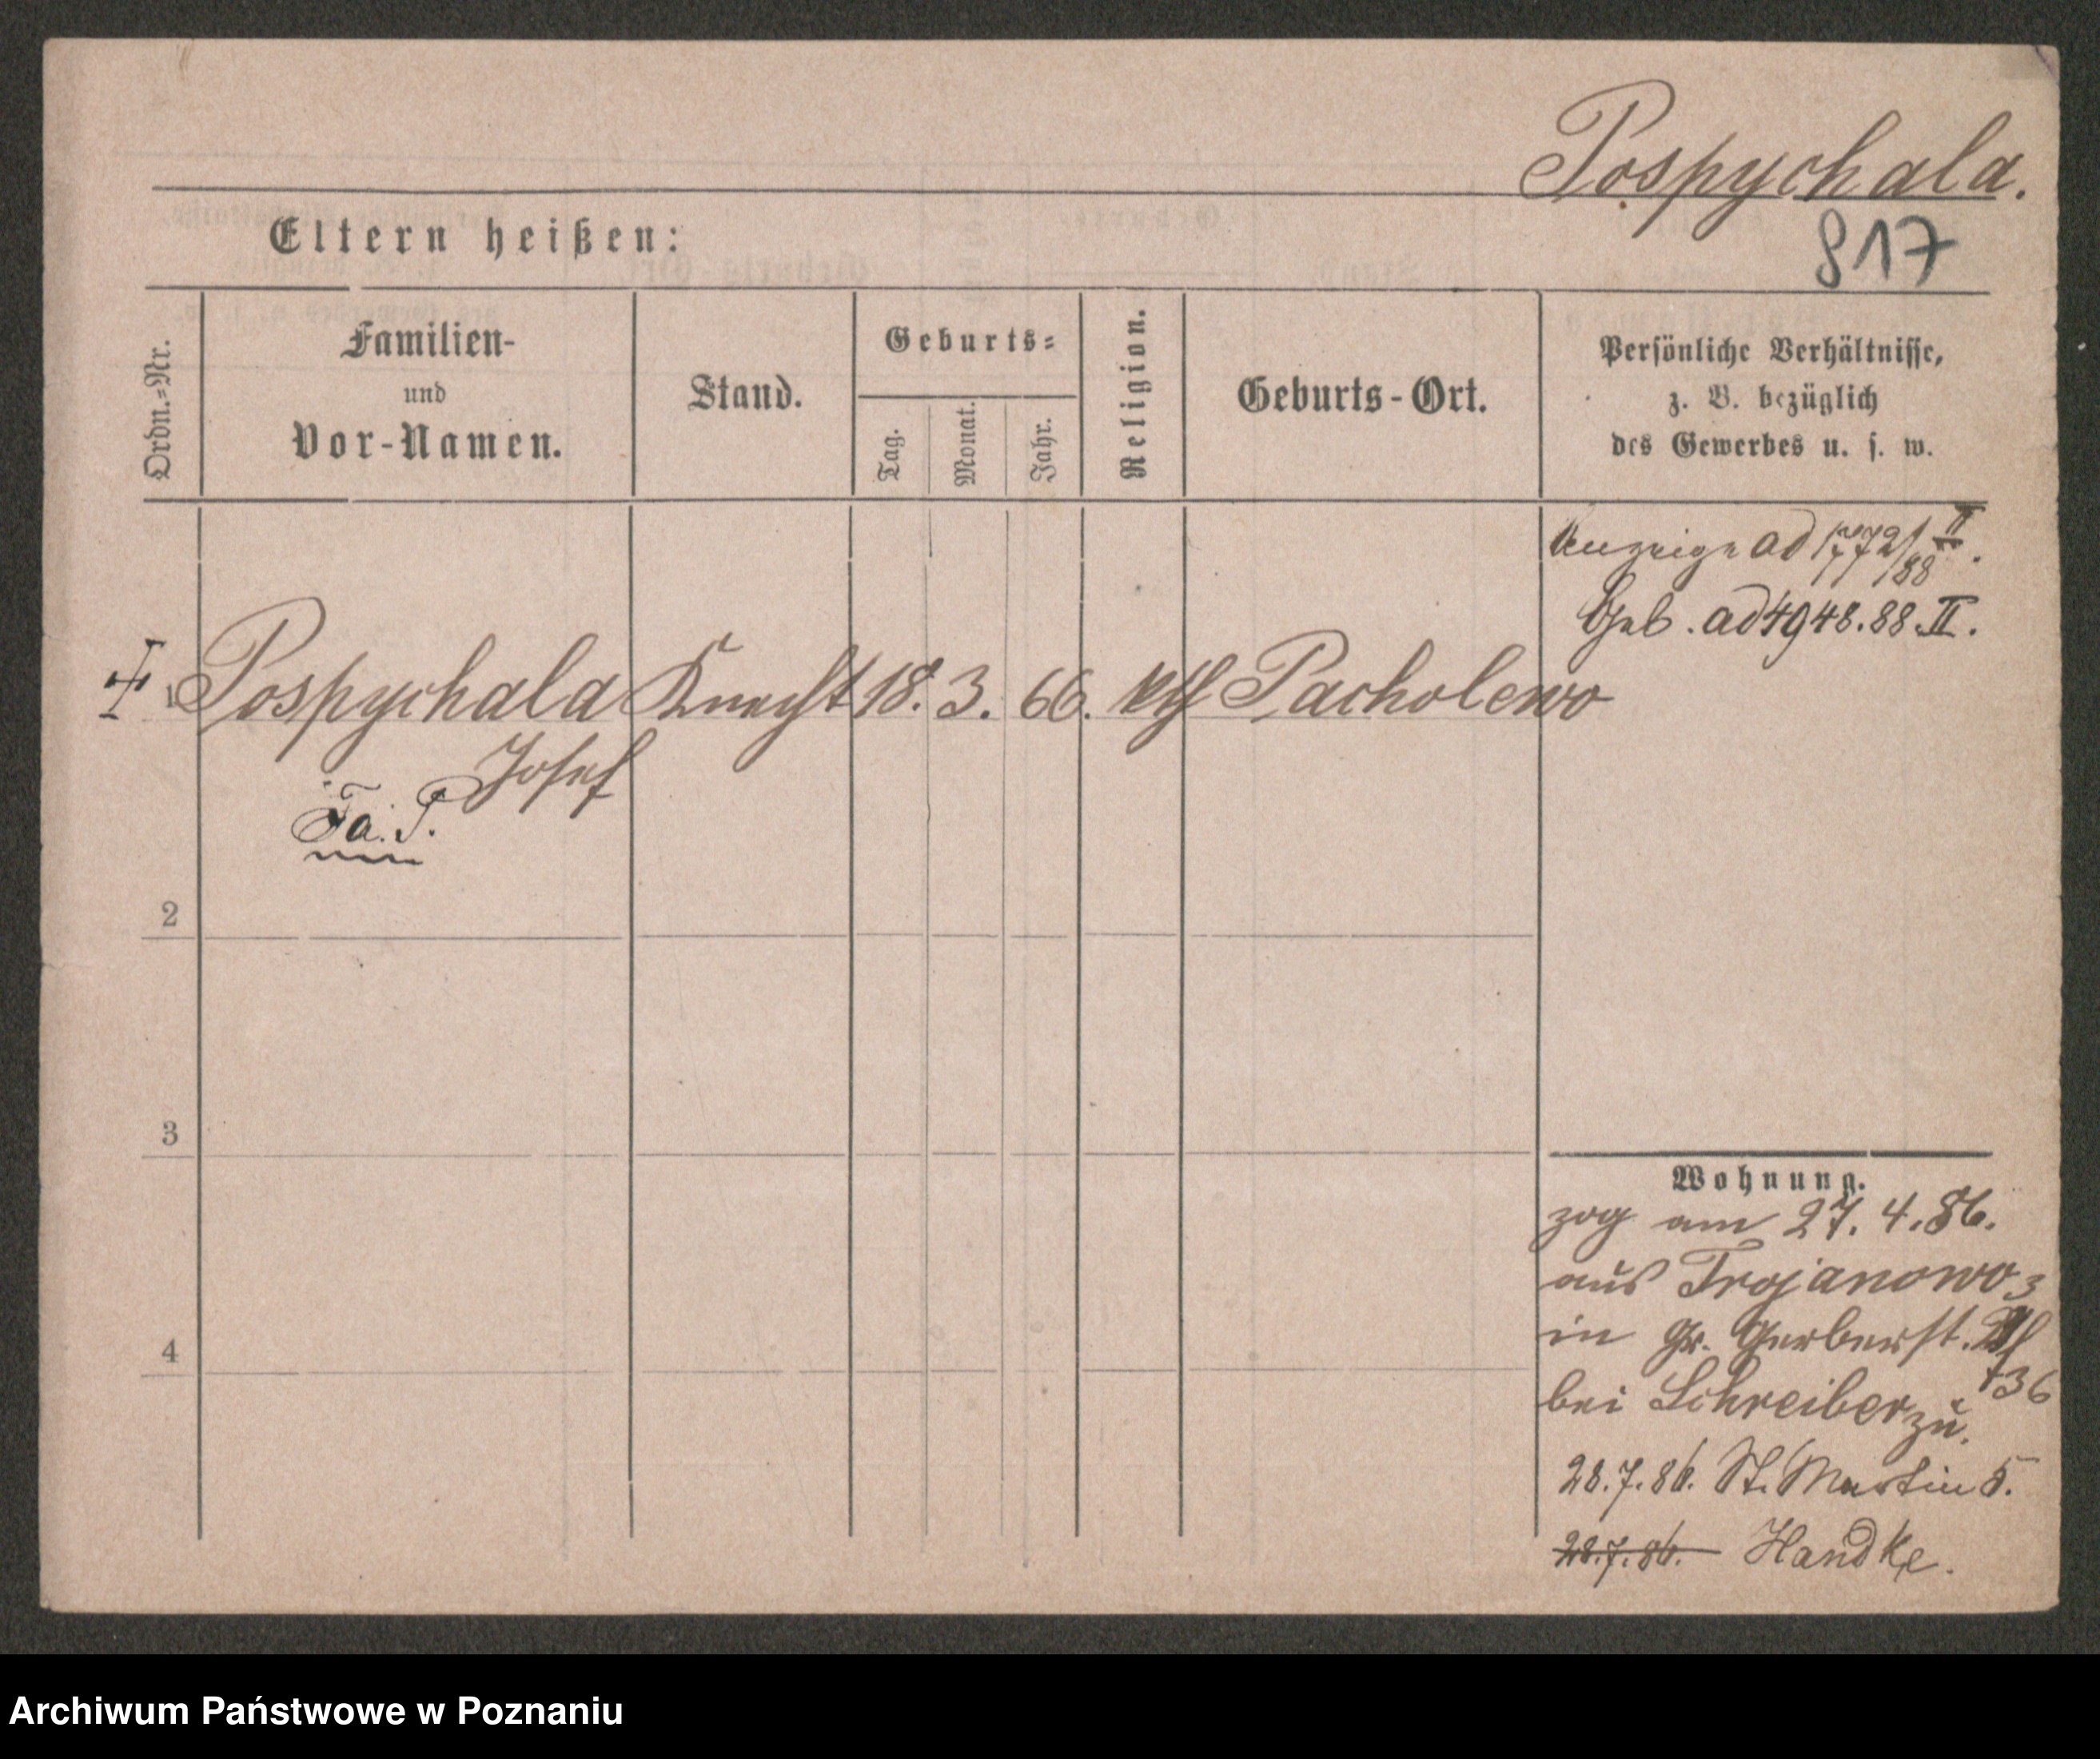 Pospychala.
817
Eltern heißen:
Ordn.-Nr.
Familien-
und
Vor-Namen.
Stand.
Geburts-
Tag.
Monat.
Jahr.
Religion.
Geburts-Ort.
Persönliche Verhältnisse,
z. B. bezüglich
des Gewerbes u. s. w.
Anzeige ad 1772/88 II.
Geb. ad 4948.88.II.
1 Pospychala Knecht 18. 3. 66. kth Pacholewo
Josef
Fa. P.
2
3
4
Wohnung.
zog am 27. 4. 86.
aus Trojanowo
in Gr. Gerberst.
36
bei Schreiber zu.
28.7.86. St. Martin 5.
28.7.86. Handke.
Archiwum Państwowe w Poznaniu